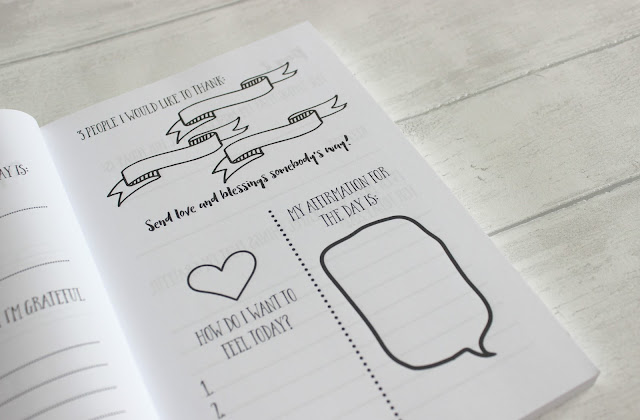 AY IS:
I'M GRATEFUL
3 PEOPLE I WOULD LIKE TO THANK:
Send love and blessings somebody's way!
HOW DO I WANT TO
FEEL TODAY?
1.
2.
MY AFFIRMATION FOR
THE DAY IS: